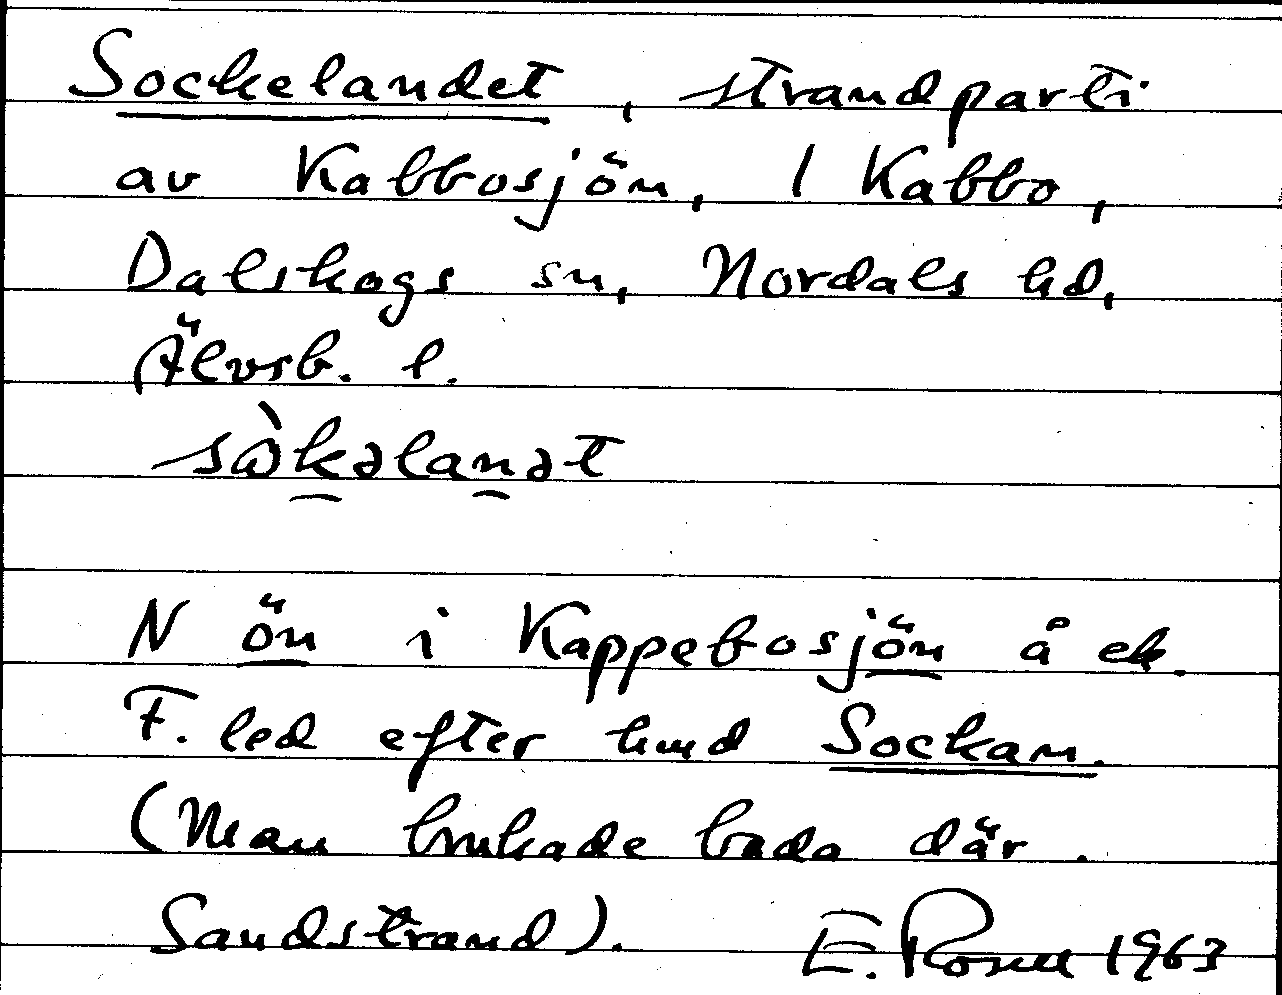 Sockelandet, strandparti
av Kabbosjön, 1 Kabbo,
Dalskogs sn, Nordals hd,
Älvsb. l.
sòkəlanət
N ön i Kappebosjön å ek.
F. led efter hund Sockan.
(Man brukade bada där.
Sandstrand). E. 1963